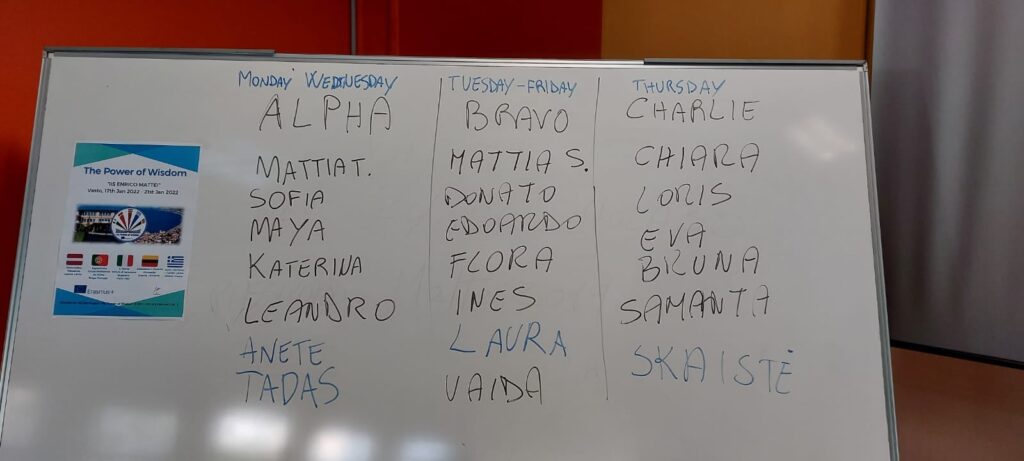 MONDAY WEDNESDAY
ALPHA
MATTIA T.
SOFIA
MAYA
KATERINA
LEANDRO
ANETE
TADAS
TUESDAY-FRIDAY
BRAVO
MATTIA S.
DONATO
EDOARDO
FLORA
INES
LAURA
VAIDA
THURSDAY
CHARLIE
CHIARA
LORIS
EVA
BRUNA
SAMANTA
SKAISTĖ
The Power of Wisdom
"IIS ENRICO MATTEI"
Vasto, 17th Jan 2022 - 21st Jan 2022
Erasmus+